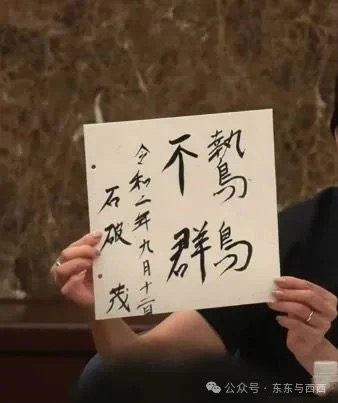 鷙鳥
不群
令和二年九月十二日
石破茂
公众号·东东与西西